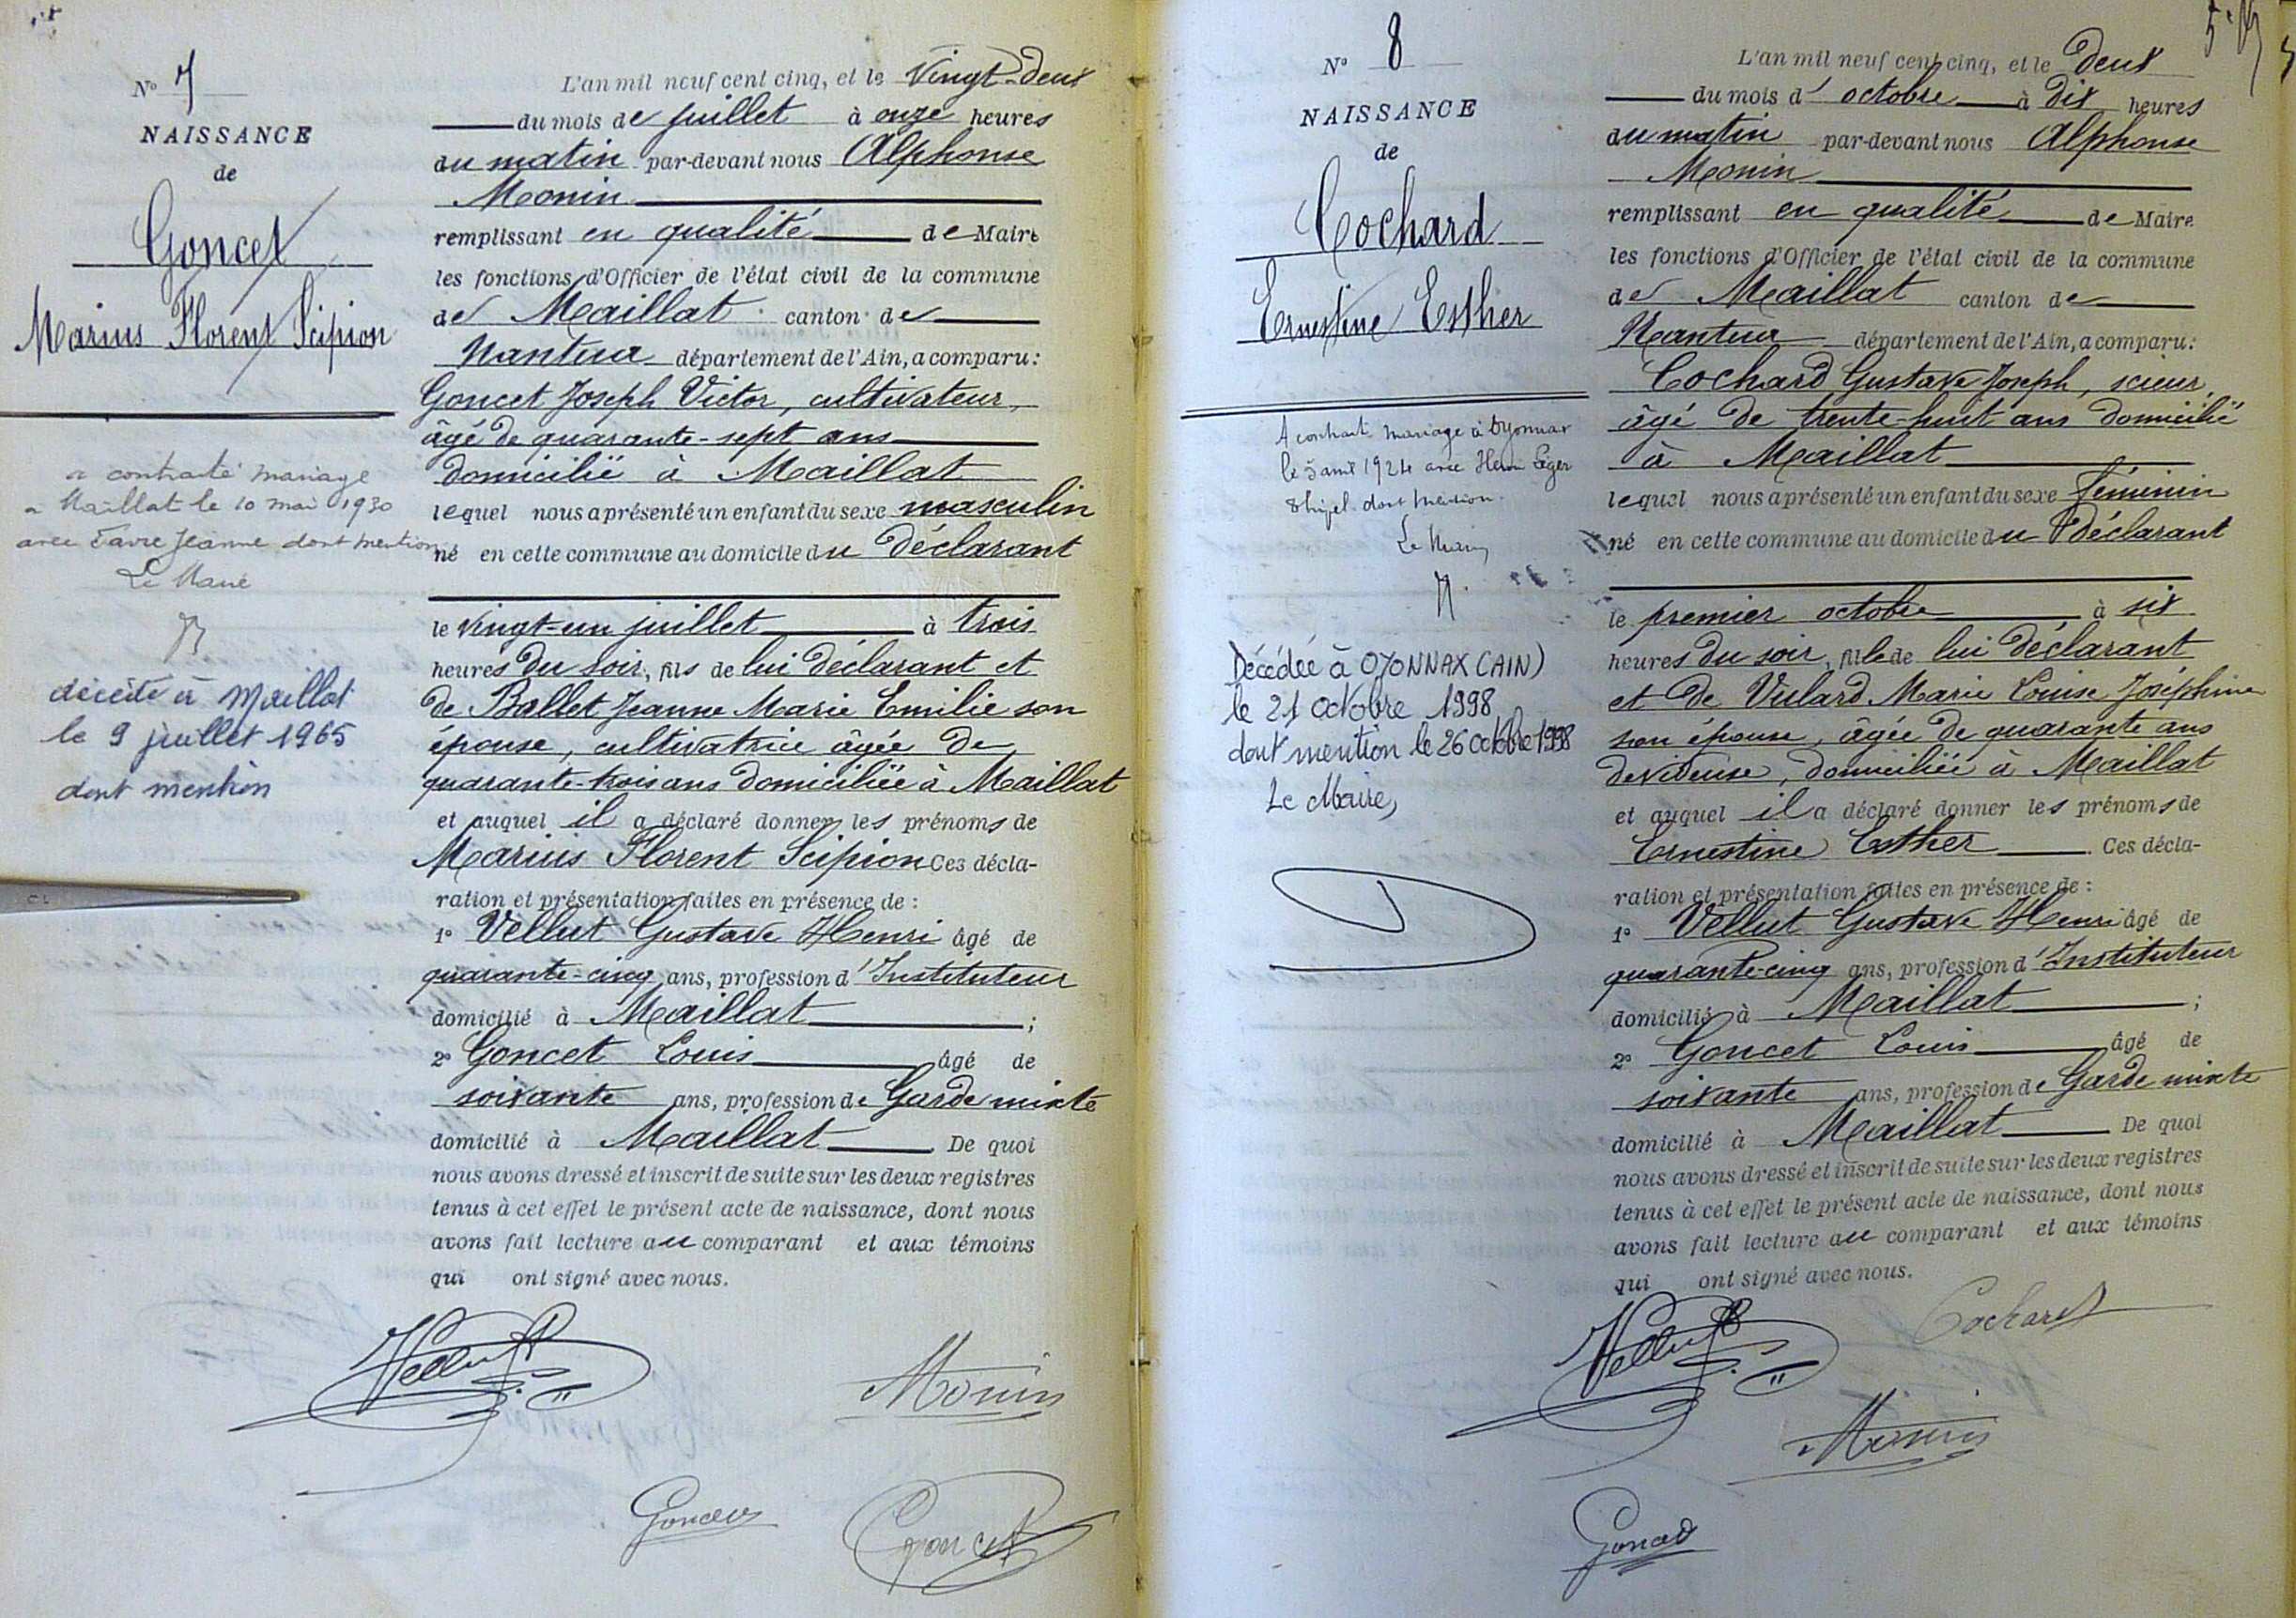 N° 7
NAISSANCE
de
Goncet
Marius Florent Scipion
a contracté mariage
a Maillat le 10 mai 1930
avec Favre Jeanne dont mention
Le Maire
décédé à Maillat
le 9 juillet 1965
dont mention
L'an mil neuf cent cinq, et le Vingt-deux
du mois de juillet à onze heures
du matin par-devant nous Alphonse
Monin
remplissant en qualité de Maire
les fonctions d'Officier de l'état civil de la commune
de Maillat canton de
Nantua département de l'Ain, a comparu:
Goncet Joseph Victor, cultivateur,
âgé de quarante-sept ans
domicilié à Maillat
lequel nous a présenté un enfant du sexe masculin
né en cette commune au domicile du déclarant
le vingt-un juillet à trois
heures du soir, fils de lui déclarant et
de Ballet Jeanne Marie Emilie son
épouse, cultivatrice âgée de
quarante-trois ans domiciliée à Maillat
et auquel il a déclaré donner les prénoms de
Marius Florent Scipion Ces décla-
ration et présentation faites en présence de :
1° Vellut Gustave Henri âgé de
quarante-cinq ans, profession d'Instituteur
domicilié à Maillat ;
2° Goncet Louis âgé de
soixante ans, profession de Garde mixte
domicilié à Maillat De quoi
nous avons dressé et inscrit de suite sur les deux registres
tenus à cet effet le présent acte de naissance, dont nous
avons fait lecture au comparant et aux témoins
qui ont signé avec nous.
Vellut
Monin
Goncet
Goncet
N° 8
NAISSANCE
de
Cochard
Ernestine Esther
A contracté mariage à Oyonnax
le 5 avril 1924 avec Henri Léger
dont mention.
Le Maire
Décédée à OYONNAX (AIN)
le 21 octobre 1998
dont mention le 26 octobre 1998
Le Maire,
L'an mil neuf cent cinq, et le Deux
du mois d'octobre à dix heures
du matin par-devant nous Alphonse
Monin
remplissant en qualité de Maire
les fonctions d'Officier de l'état civil de la commune
de Maillat canton de
Nantua département de l'Ain, a comparu:
Cochard Gustave Joseph, scieur,
âgé de trente-huit ans domicilié
à Maillat
lequel nous a présenté un enfant du sexe féminin
né en cette commune au domicile du déclarant
le premier octobre à six
heures du soir, fille de lui déclarant
et de Vulard Marie Louise Joséphine
son épouse, âgée de quarante ans
devideuse, domiciliée à Maillat
et auquel il a déclaré donner les prénoms de
Ernestine Esther . Ces décla-
ration et présentation faites en présence de :
1° Vellut Gustave Henri âgé de
quarante-cinq ans, profession d'Instituteur
domicilié à Maillat ;
2° Goncet Louis âgé de
soixante ans, profession de Garde mixte
domicilié à Maillat De quoi
nous avons dressé et inscrit de suite sur les deux registres
tenus à cet effet le présent acte de naissance, dont nous
avons fait lecture au comparant et aux témoins
qui ont signé avec nous.
Vellut
Cochard
Monin
Goncet